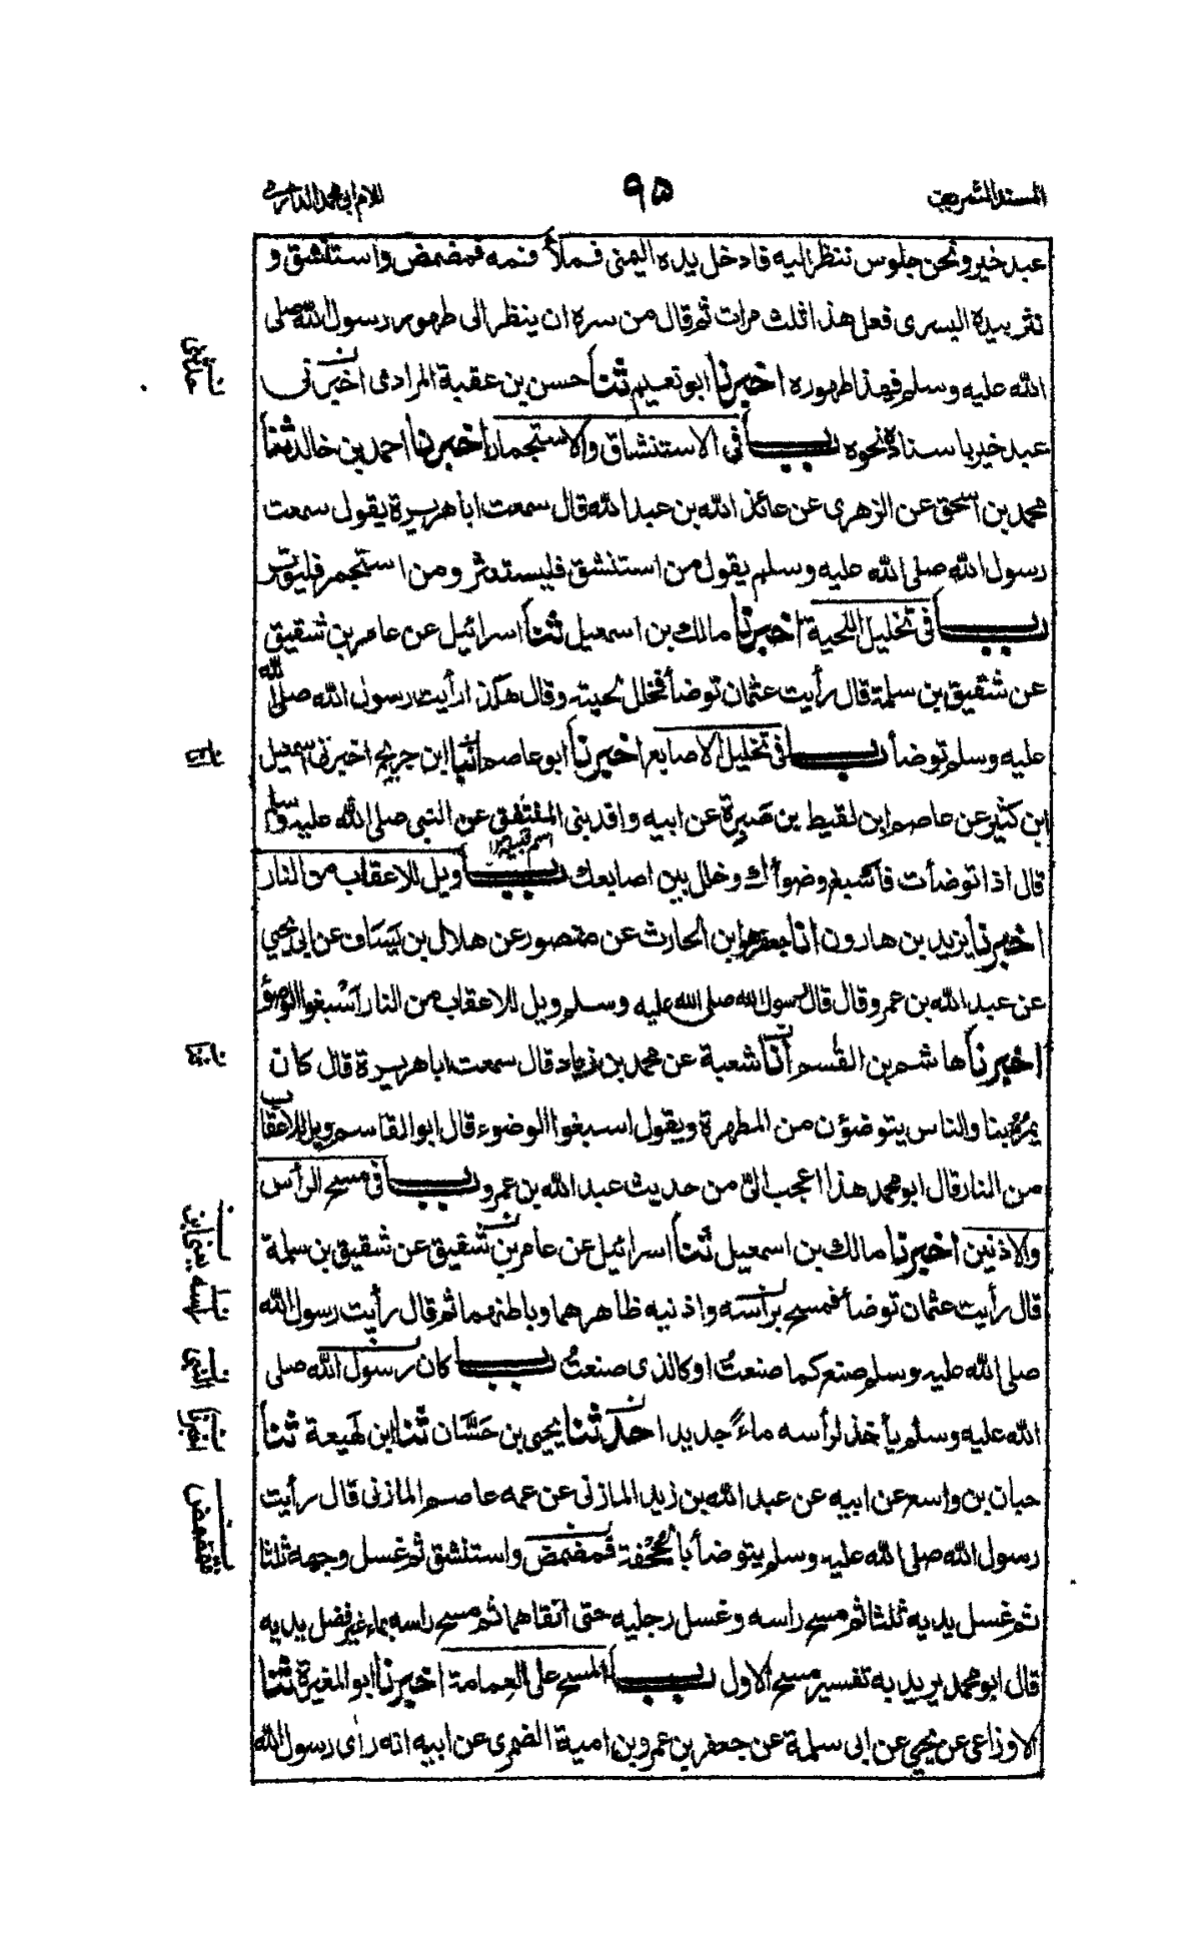 المسند الشريف
۹۵
للامام ابی محمد الدارمی
عبد خير ونحن جلوس ننظر اليه فادخل يده اليمنى فملأ فمه فمضمض واستنشق و
نثر بيده اليسرى فعل هذا ثلث مرات ثم قال من سره ان ينظر الى طهور رسول الله صلى
الله عليه وسلم فهذا طهوره اخبرنا ابو نعيم ثنا حسن بن عقبة المرادى اخبرنى
عبد خير باسناده نحوه باب فى الاستنشاق والاستجمار اخبرنا احمد بن خالد ثنا
محمد بن اسحق عن الزهرى عن عائذ الله بن عبد الله قال سمعت ابا هريرة يقول سمعت
رسول الله صلى الله عليه وسلم يقول من استنشق فليستنثر ومن استجمر فليوتر
باب فى تخليل اللحية اخبرنا مالك بن اسمعيل ثنا اسرائيل عن عامر بن شقيق
عن شقيق بن سلمة قال رأيت عثمان توضأ فخلل لحيته وقال هكذا رأيت رسول الله صلى الله
عليه وسلم توضأ باب فى تخليل الاصابع اخبرنا ابو عاصم انبا ابن جريج اخبرنى اسمعيل
ابن كثير عن عاصم ابن لقيط بن صَبِرة عن ابيه وافد بنى المنتفق عن النبى صلى الله عليه وسلم
قال اذا توضأت فاسبغ وضوأك وخلل بين اصابعك باب ويل للاعقاب من النار
اخبرنا يزيد بن هارون انا جعفر هو ابن الحارث عن منصور عن هلال بن يَسَاف عن ابى يحيى
عن عبد الله بن عمرو قال قال رسول الله صلى الله عليه وسلم ويل للاعقاب من النار اَسْبغوا الوضوء
اخبرنا هاشم بن القسم أنا شعبة عن محمد بن زياد قال سمعت ابا هريرة قال كان
يمرُّ بنا والناس يتوضؤن من المطهرة ويقول اسبغوا الوضوء قال ابو القاسم ويل للاعقاب
من النار قال ابو محمد هذا اعجب الىّ من حديث عبد الله بن عمرو باب فى مسح الرأس
والاذنين اخبرنا مالك بن اسمعيل ثنا اسرائيل عن عامر بن شقيق عن شقيق بن سلمة
قال رأيت عثمان توضأ فمسح برأسه واذنيه ظاهرهما وباطنهما ثم قال رأيت رسول الله
صلى الله عليه وسلم صنع كما صنعتُ او كالذى صنعتُ باب كان رسول الله صلى
الله عليه وسلم يأخذ لرأسه ماءً جديدا حدثنا يحيى بن حَسَّان ثنا ابن لَهيعة ثنا
حبان بن واسع عن ابيه عن عبد الله بن زيد المازنى عن عمه عاصم المازنى قال رأيت
رسول الله صلى الله عليه وسلم يتوضأ بالجُحْفة فمضمض واستنشق ثم غسل وجهه ثلثا
ثم غسل يديه ثلثا ثم مسح راسه وغسل رجليه حتى انقاهما ثم مسح راسه بماء غير فضل يديه
قال ابو محمد يريد به تفسير مسح الاول باب المسح على العِمامة اخبرنا ابو المغيرة ثنا
الاوزاعى عن يحيى عن ابى سلمة عن جعفر بن عمرو بن امية الضمرى عن ابيه انه رأى رسول الله